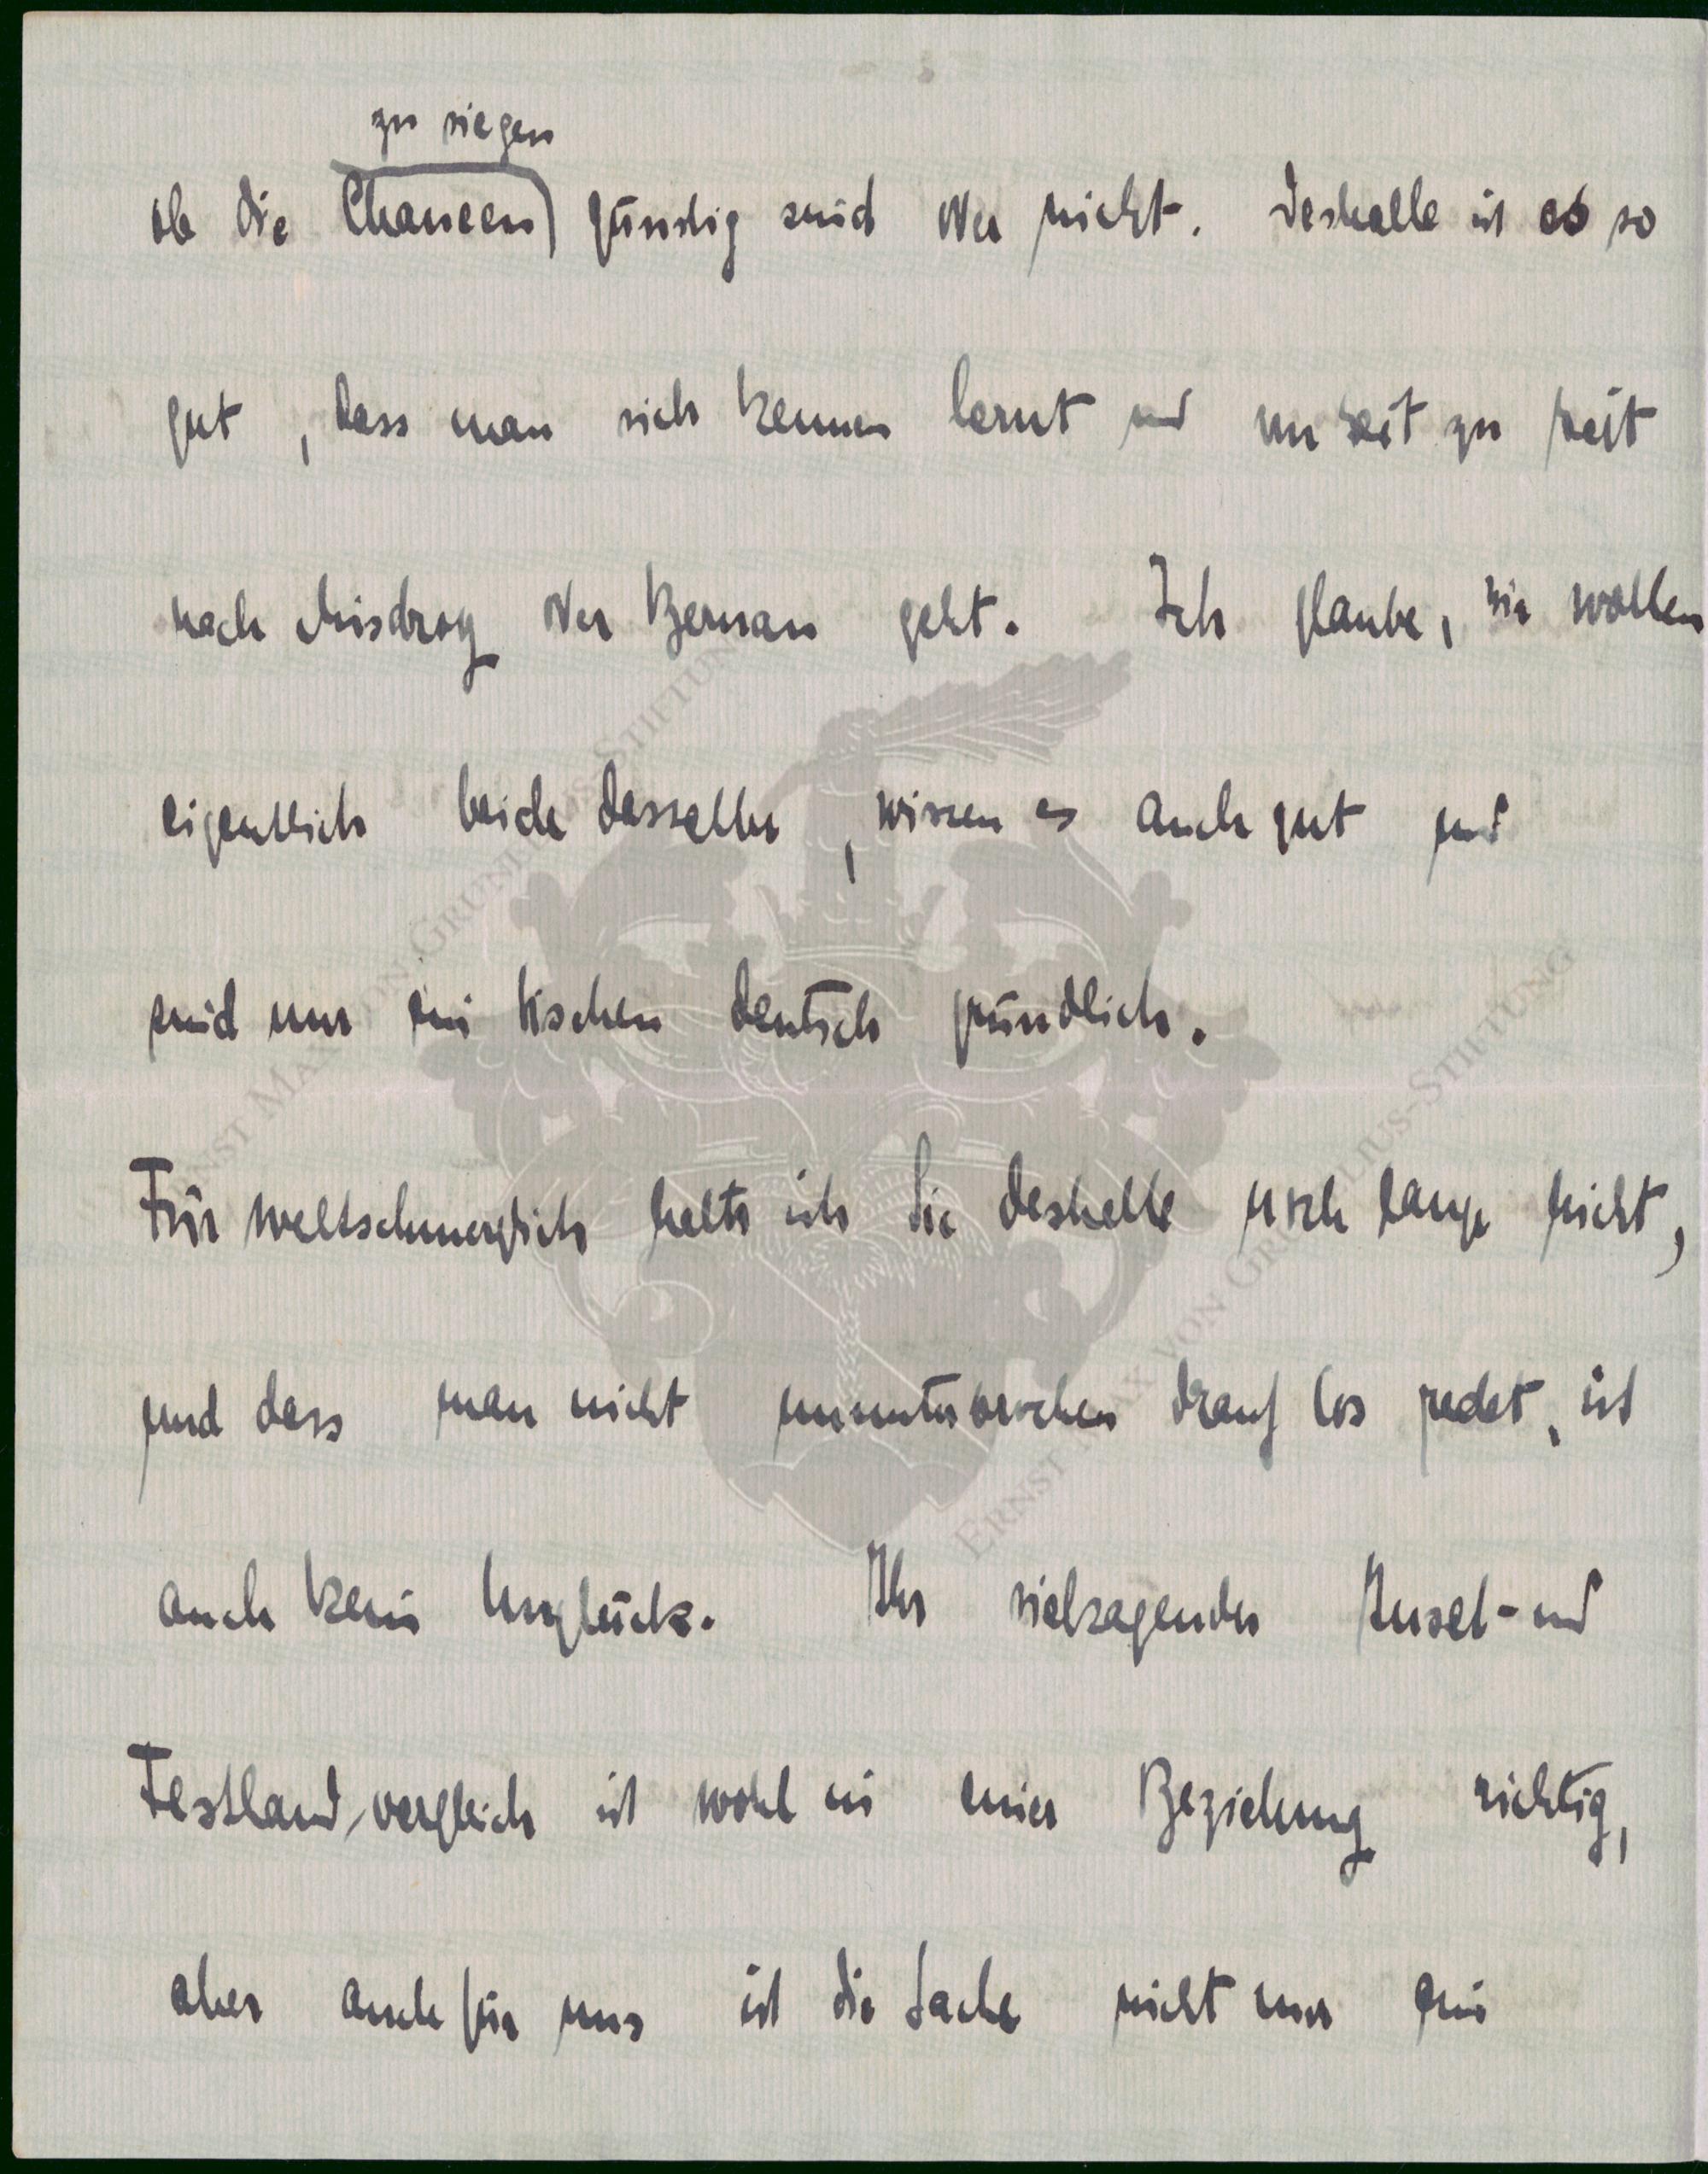 zu siegen
ob die Chancen günstig sind oder nicht. Deshalb ist es so
gut, dass man sich kennen lernt und von Zeit zu Zeit
nach Misdroy oder Bansin geht. Ich glaube, wir wollen
eigentlich beide dasselbe, wissen es auch gut und
sind nur ein bischen deutsch gründlich.
Für weltschmerzlich halte ich Sie deshalb noch lange nicht,
und dass man nicht ununterbrochen drauf los redet, ist
auch kein Unglück. Ihr vielsagender Insel- und
Festland vergleich ist wohl in einer Beziehung richtig,
aber auch für uns ist die Sache nicht nur ein
ERNST MAX VON GRUNELIUS-STIFTUNG
ERNST MAX VON GRUNELIUS-STIFTUNG